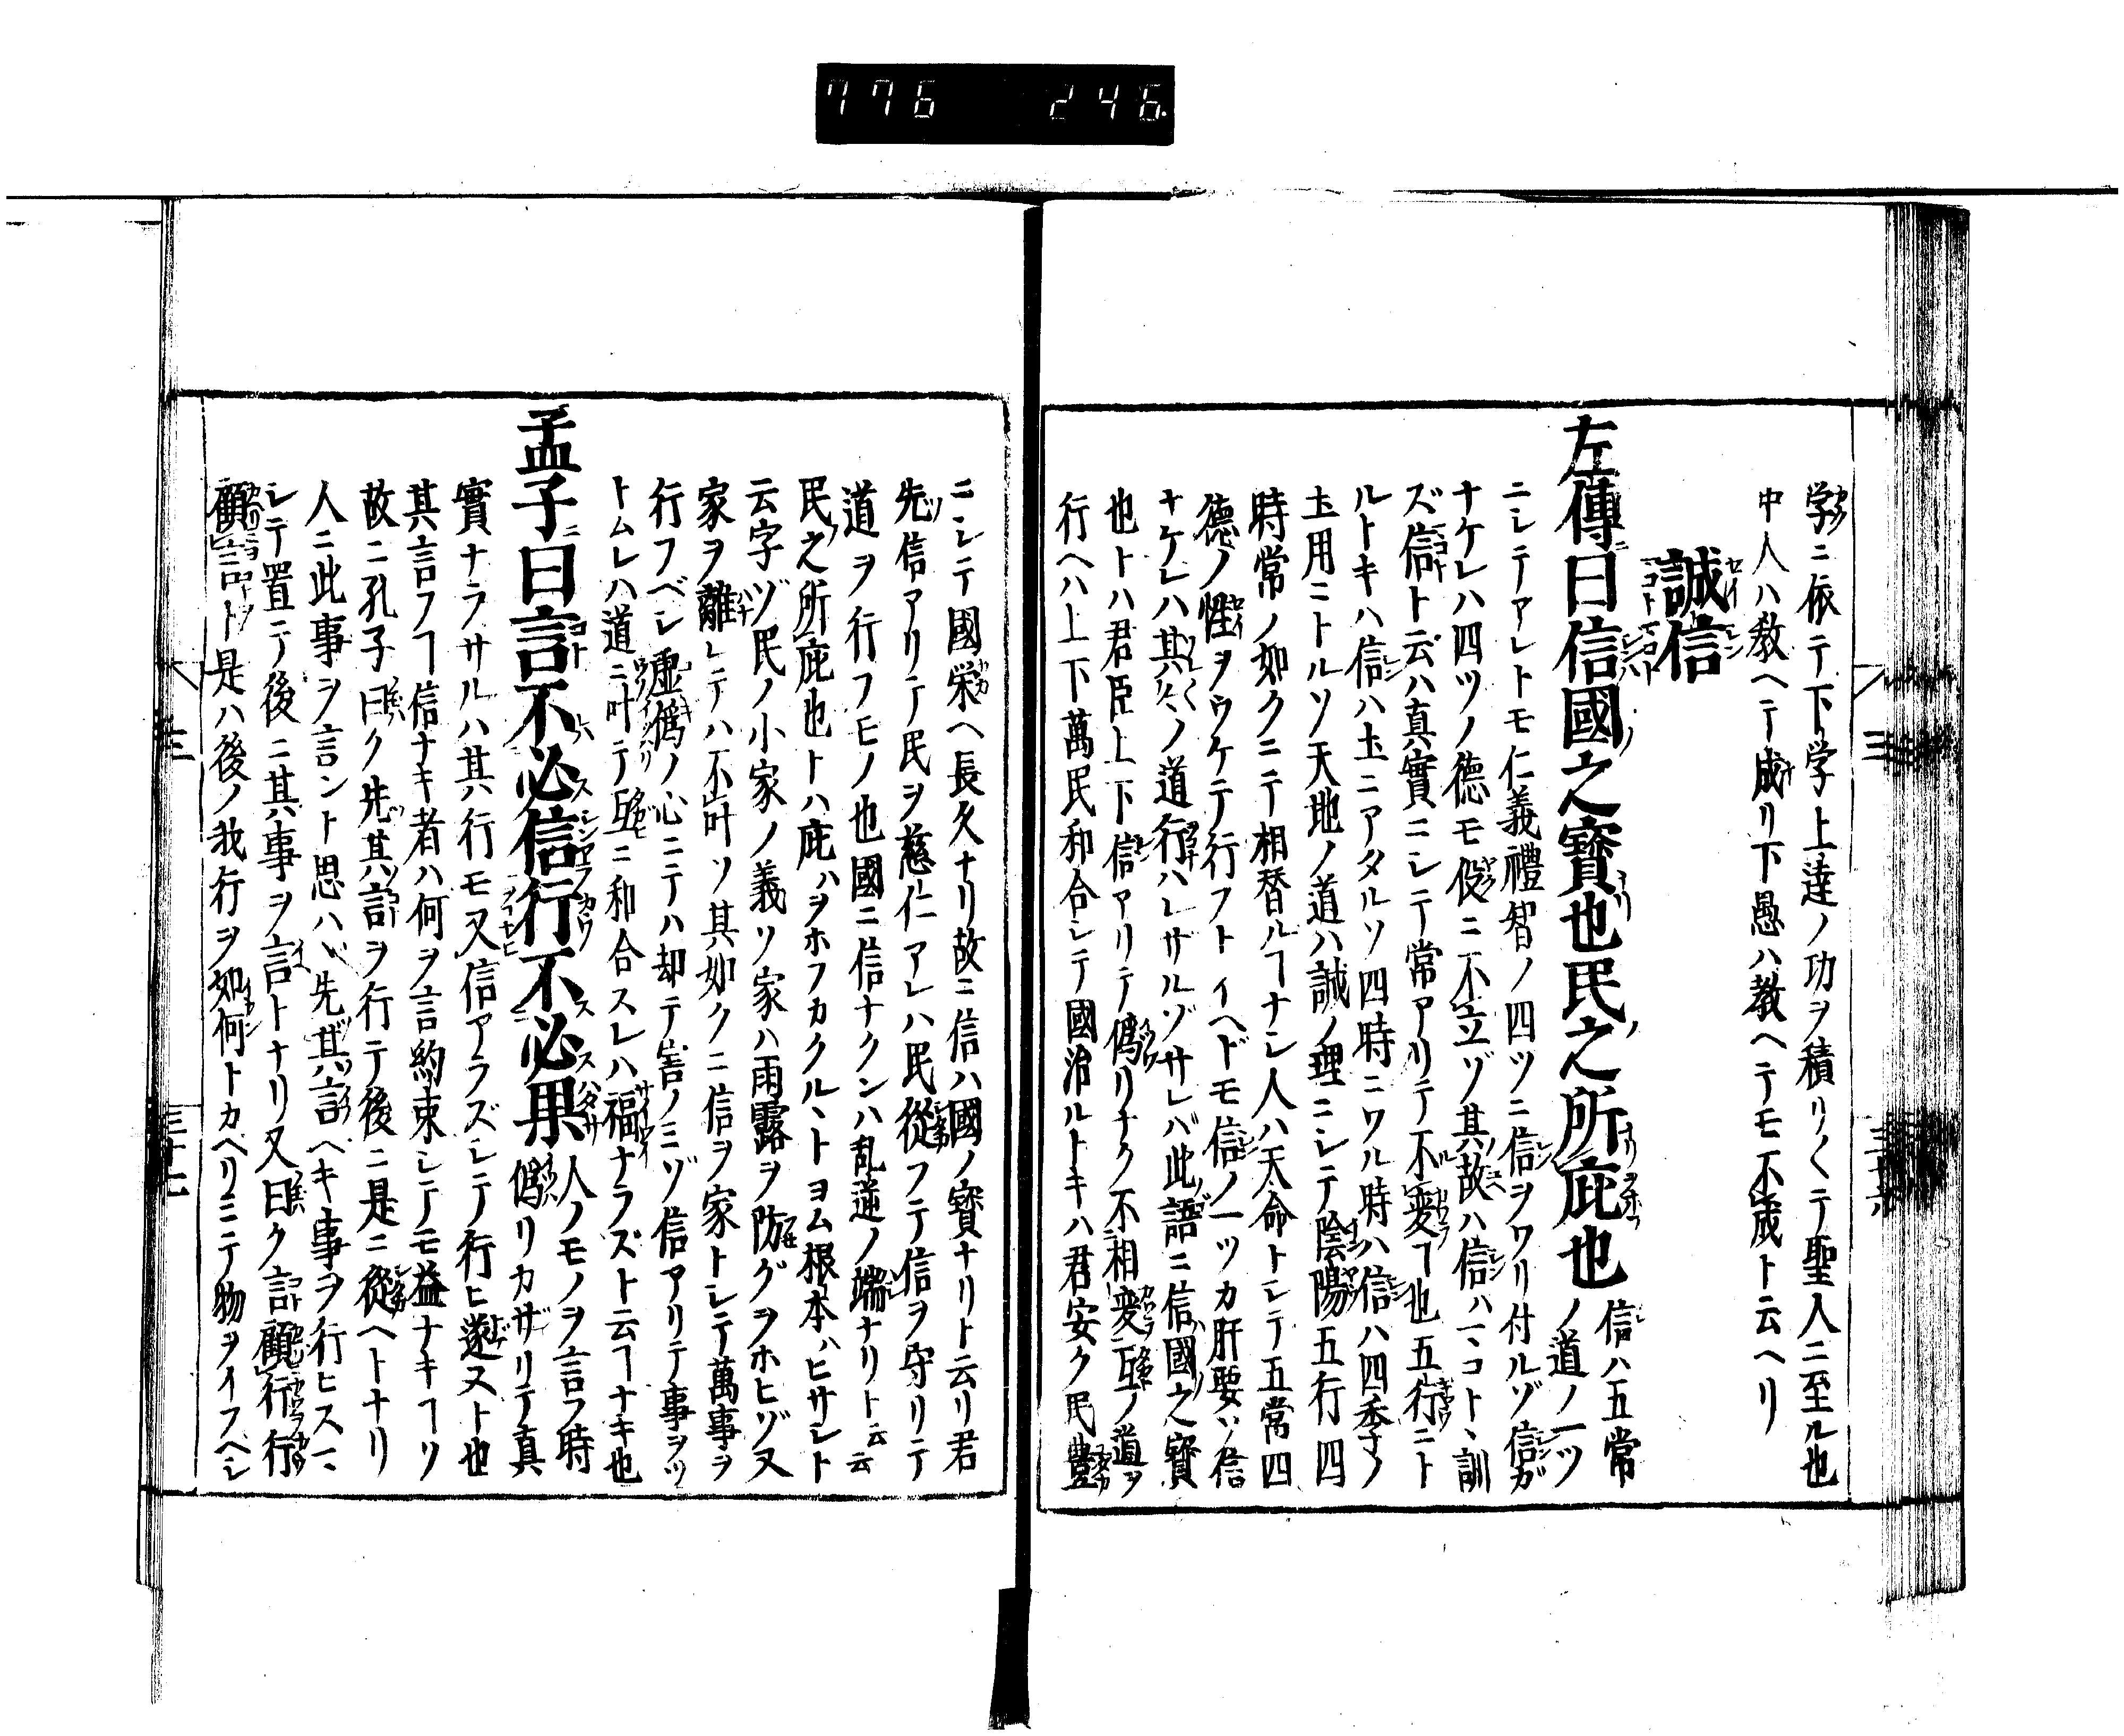 776 246.
学ニ依テ下学上達ノ功ヲ積リ〱テ聖人ニ至ル也
中人ハ教ヘテ成リ下愚ハ教ヘテモ不成ト云ヘリ
誠信
左傳曰信國之寳也民之所庇也 信ハ五常
ノ道ノ一ツ
ニシテアレトモ仁義禮智ノ四ツニ信ヲワリ付ルゾ信ガ
ナケレハ四ツノ德モ倶ニ不立ゾ其故ハ信ハマコトヽ訓
ズ信ト云ハ真實ニシテ常アリテ不変ヿ也五行ニト
ルトキハ信ハ土ニアタルソ四時ニワル時ハ信ハ四季ノ
土用ニトルソ天地ノ道ハ誠ノ理ニシテ陰陽五行四
時常ノ如クニテ相替ルヿナシ人ハ天命トシテ五常四
德ノ性ヲウケテ行フトイヘドモ信ノ一ツカ肝要ソ信
ナケレハ其〻ノ道行ハレサルゾサレバ此語ニ信國之寳
也トハ君臣上下信アリテ偽リナク不相変互ノ道ヲ
行ヘハ上下萬民和合シテ國治ルトキハ君安ク民豊
ニシテ國栄ヘ長久ナリ故ニ信ハ國ノ寳ナリト云リ君
先信アリテ民ヲ慈仁アレハ民從フテ信ヲ守リテ
道ヲ行フモノ也國ニ信ナクンハ乱逆ノ端ナリト云云
民之所庇也トハ庇ハヲホフカクルヽトヨム根本ハヒサシト
云字ゾ民ノ小家ノ義ソ家ハ雨露ヲ防グヲホヒゾ又
家ヲ離レテハ不叶ソ其如クニ信ヲ家トシテ萬事ヲ
行フベシ虚偽ノ心ニテハ却テ害ノミゾ信アリテ事ヲツ
トムレハ道ニ叶テ互ニ和合スレハ福ナラズト云ヿナキ也
孟子曰言不必信行不必果 人ノモノヲ言フ時
偽リカザリテ真
實ナラサルハ其行モ又信アラズシテ行ヒ遂ヌト也
其言フヿ信ナキ者ハ何ヲ言約束シテモ益ナキヿソ
故ニ孔子曰ク先其言ヲ行テ後ニ是ニ從ヘトナリ
人ニ此事ヲ言ント思ハヾ先其言ヘキ事ヲ行ヒスマ
シテ置テ後ニ其事ヲ言トナリ又曰ク言顧行行
顧言ト是ハ後ノ我行ヲ如何トカヘリミテ物ヲイフヘシ
三
三十七